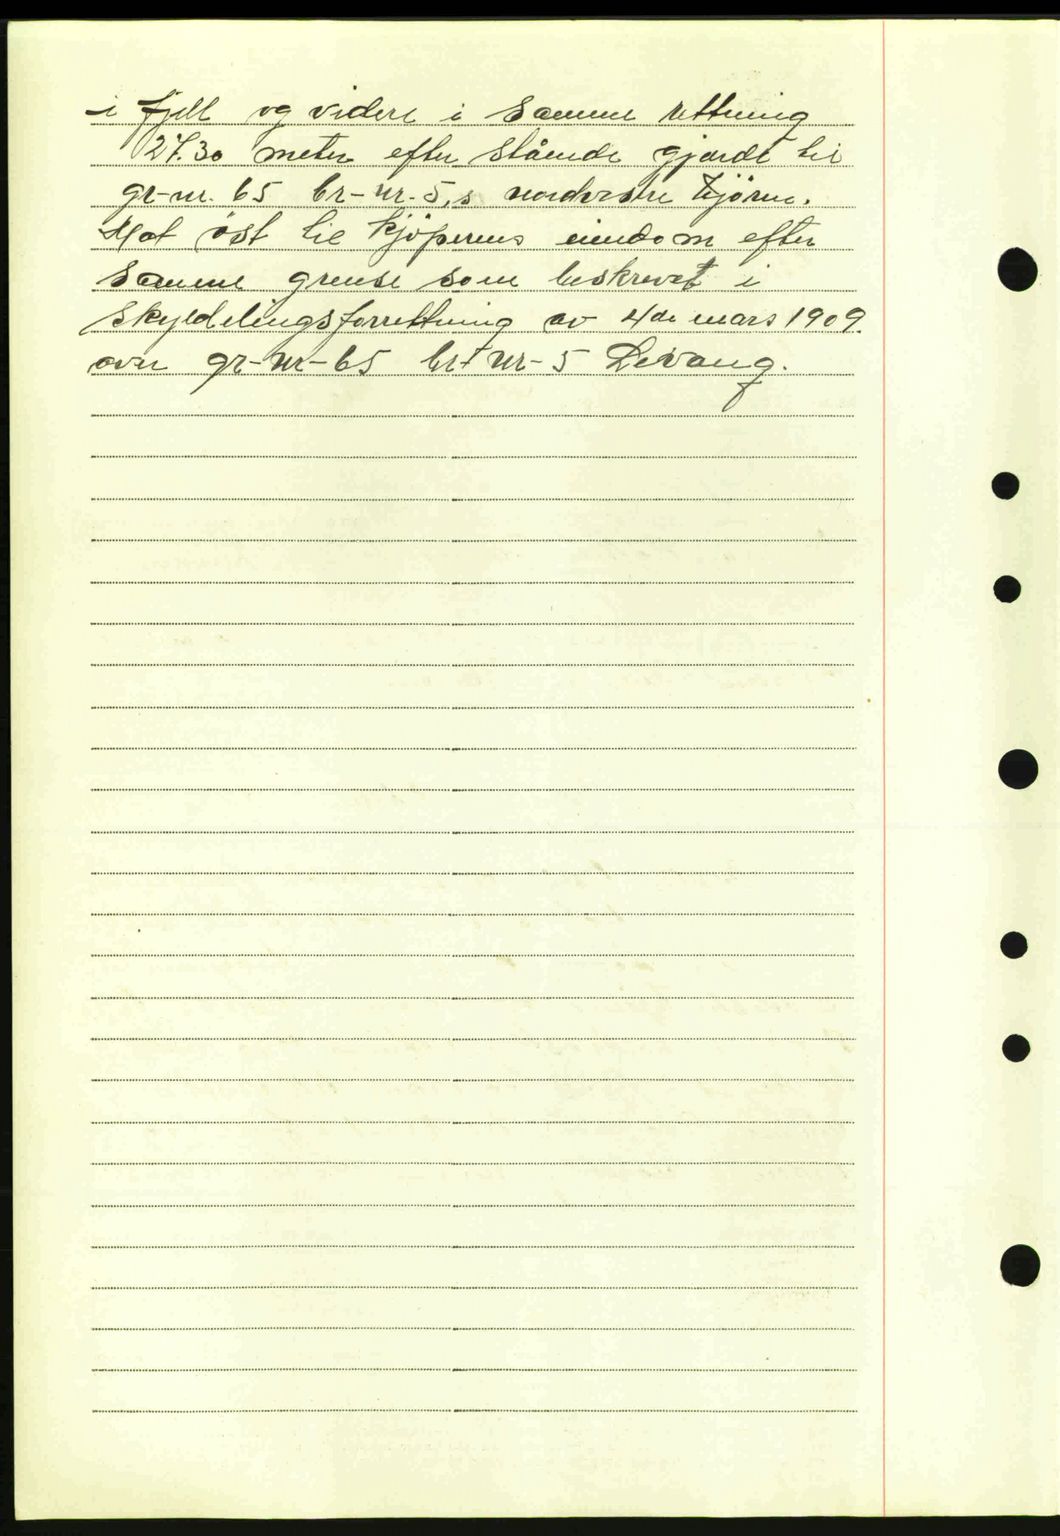 i fjell og videre i samme rettning
27.30 meter efter stående gjærde til
gr-nr. 65 br-nr-5,s nordvestre hjörne.
Mot öst til kjöperens eiendom efter
samme grense som beskrevet i
skyldelingsforrettning av 4de mars 1909.
over gr-nr-65 br-nr-5 Levang.